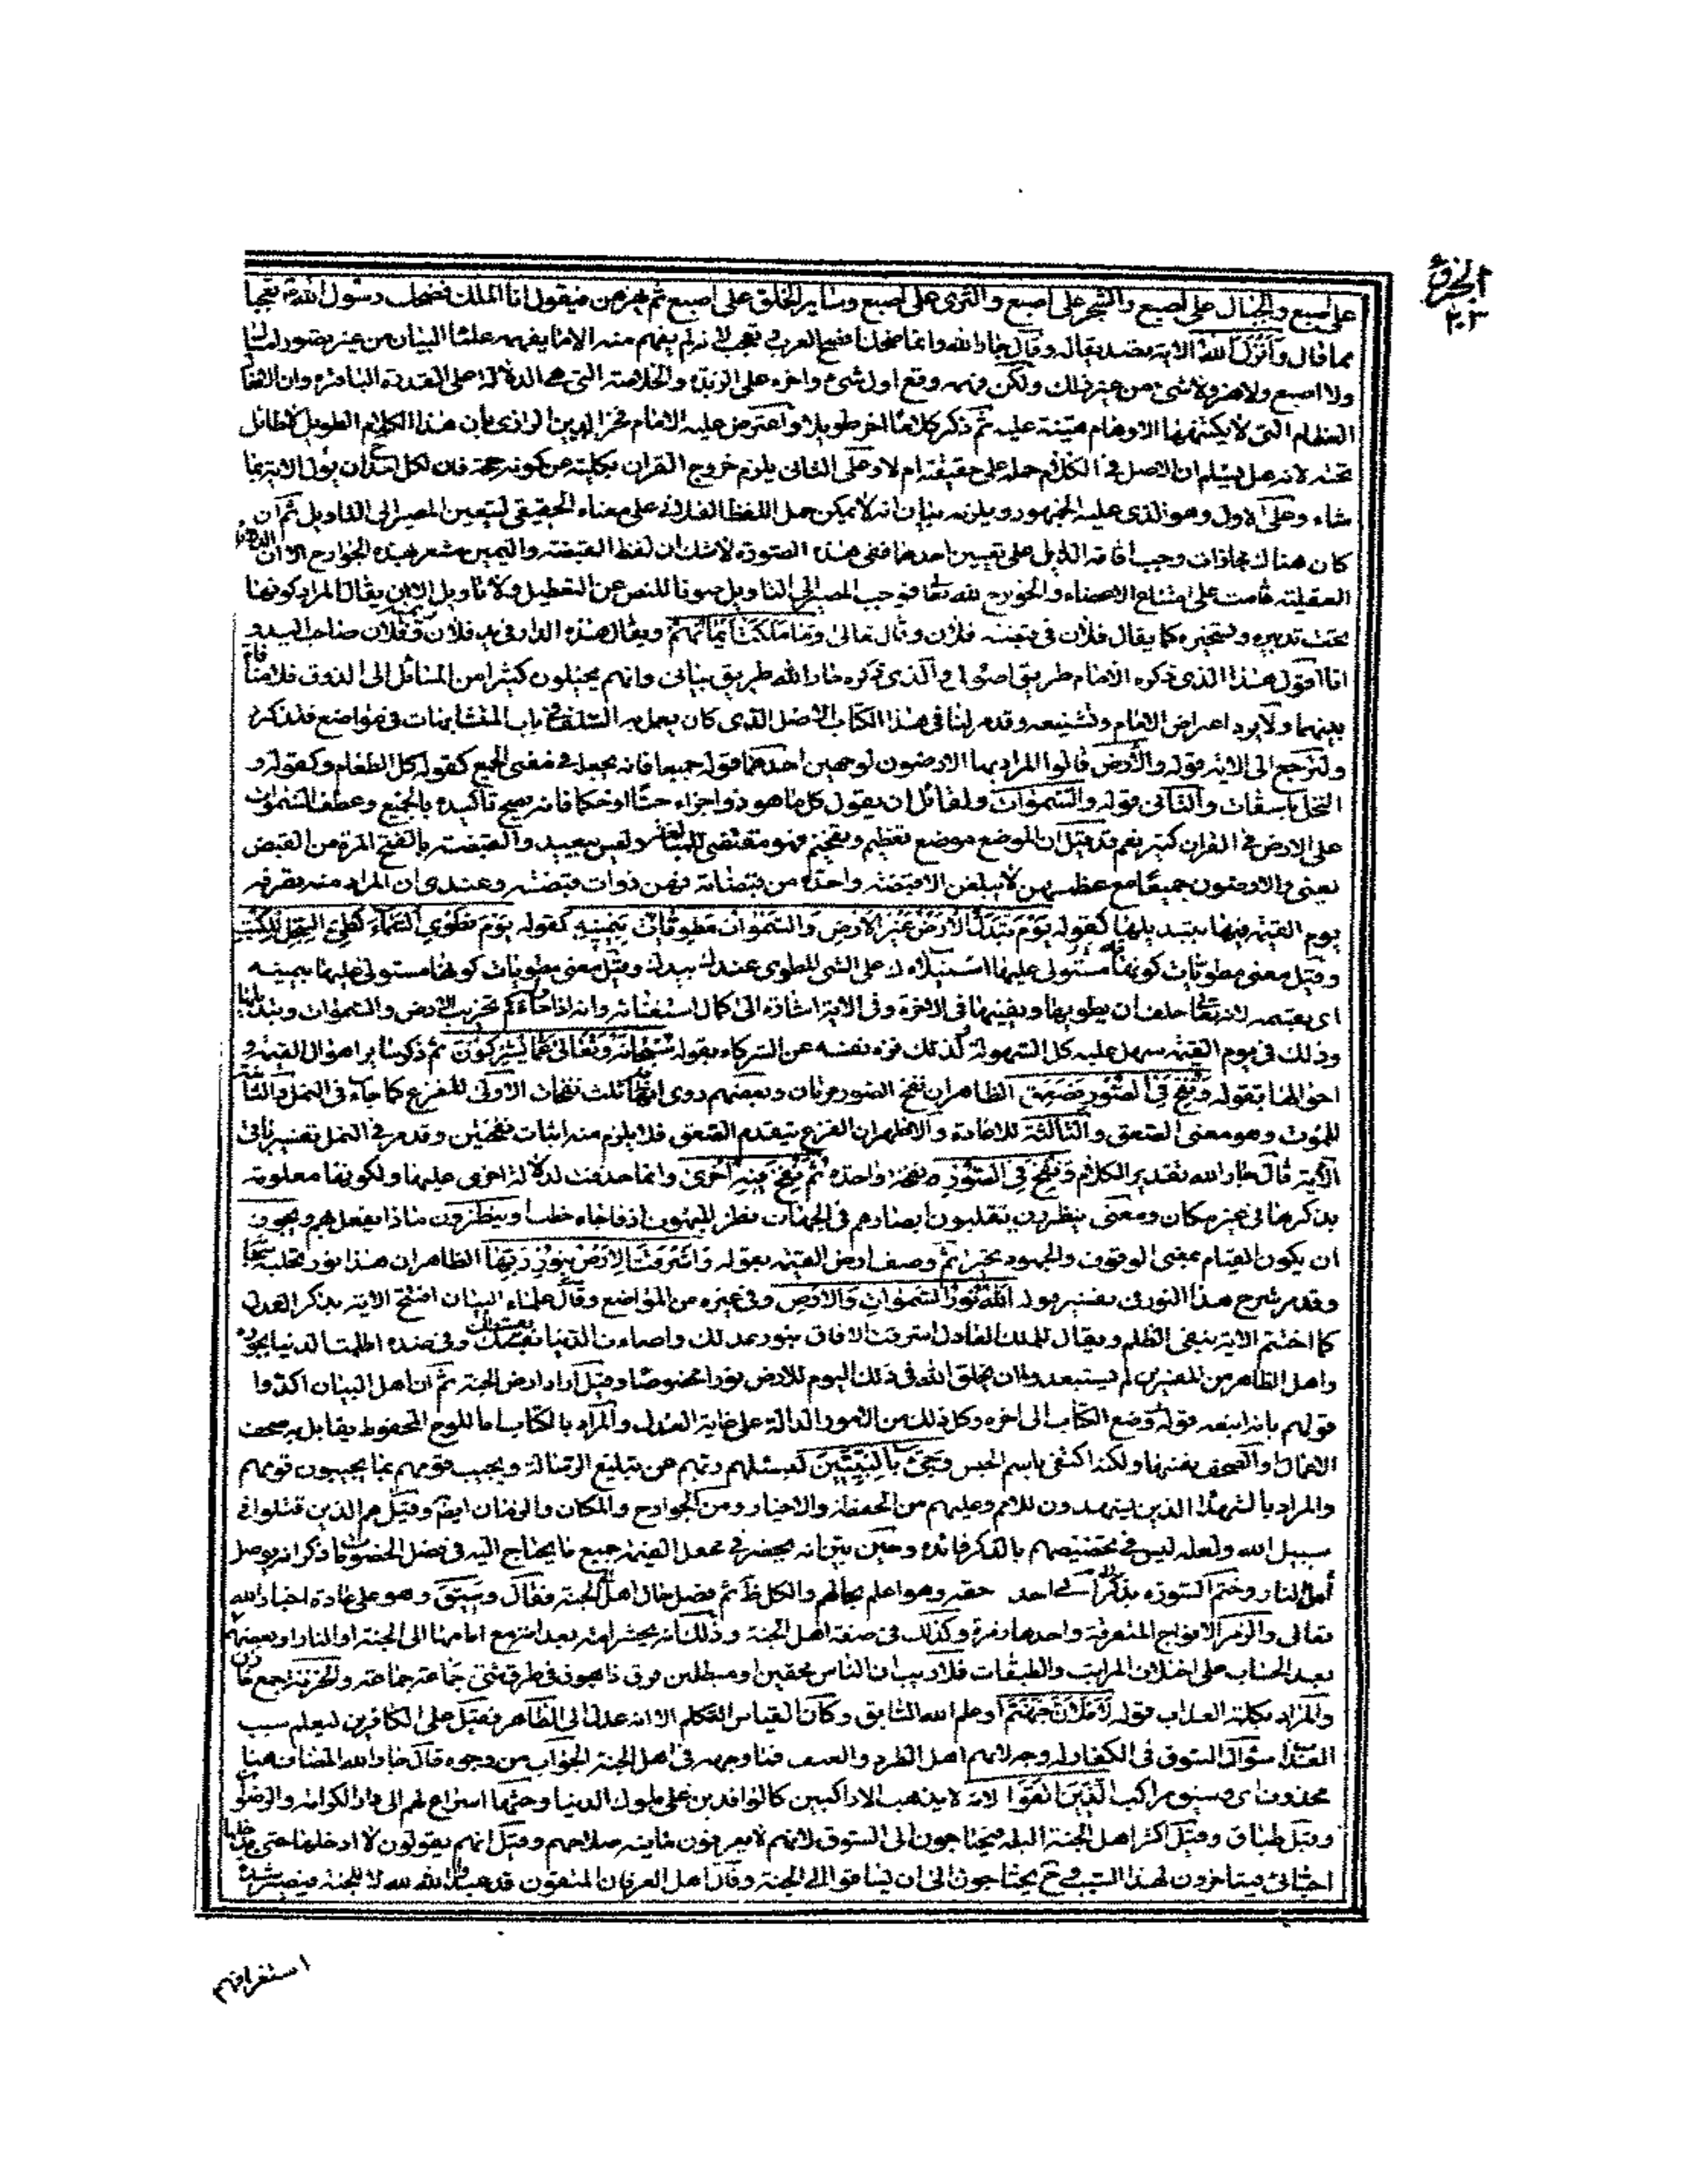 الجزؤ
٢٠٣
على اصبع والجبال على اصبع والشجر على اصبع والثرى على اصبع وساير الخلق على اصبع ثم يهزهن فيقول انا الملك فضحك رسول الله تعجبا
مما قال وانزل الله الاية تصديقا له وقال جار الله وانما ضحك افصح العرب وتعجب لانه لم يفهم منه الا ما يفهمه علماء البيان من غير تصور امساك
ولا اصبع ولا هز ولا شئ من غير ذلك ولكن فهمه وقع اول شئ واخره على الزبدة والخلاصة التى هى الدلالة على القدرة الباهرة وان الافعال
العظام التى لا يكتنهها الاوهام هينة عليه ثم ذكر كلاما اخر طويلا واعترض عليه الامام فخر الدين الرازى بان هذا الكلام الطويل لا طائل
تحته لانه هل يسلم ان الاصل فى الكلام حمله على حقيقته ام لا وعلى الثانى يلزم خروج القران بكليته عن كونه حجة فان لكل احد ان يؤل الاية بما
شاء وعلى الاول وهو الذى عليه الجمهور ويلزمه بيان انه لا يمكن حمل اللفظ الفلانى على معناه الحقيقى لتعين المصير الى التاويل ثم ان
كان هناك مجازات وجب اقامة الدليل على تعيين احدهما ففى هذه الصورة لا شك ان لفظ القبضة واليمين مشعر بهذه الجوارح الا ان الدلائل
العقلية قامت على امتناع الاعضاء والجوارح لله تعالى فوجب المصير الى التاويل صونا للنص عن التعطيل ولا تاويل الا ان يقال المراد كونها
تحت تدبيره وتسخيره كما يقال فلان فى قبضة فلان وقال تعالى وما ملكت ايمانهم ويقال هذه الدار فى يد فلان وفلان صاحب اليد و
انا اقول هذا الذى ذكره الامام طريق اصولى والذى ذكره جار الله طريق بيانى وانهم يحيلون كثيرا من المسائل الى الذوق فلا منافاة
بينهما ولا يرد اعتراض الامام وتشنيعه وقد مر لنا فى هذا الكتاب الاصل الذى كان يعمل به السلف فى باب المتشابهات فى مواضع فلنذكره
ولنرجع الى الاية قوله والارض قالوا المراد بها الارضون لوجهين احدهما قوله جميعا فانه يجعله فى معنى الجمع كقوله كل الطعام وكقوله و
النخل باسقات والثانى قوله والسموات ولقائل ان يقول كل ما هو ذو اجزاء حسا او حكما فانه يصح تاكيده بالجميع وعطف السموات
على الارض فى القران كثير نعم قد قيل ان الموضع موضع تعظيم وتفخيم فهو مقتضى للمبالغة وليس ببعيد والقبضة بالفتح المرة من القبض
يعنى والارضون جميعا مع عظمهن لا يبلغن الا قبضة واحدة من قبضاته فهن ذوات قبضته وعندى ان المراد منه تصرفه
يوم القيمة فيها بتبديلها كقوله يوم تبدل الارض غير الارض والسموات مطويات بيمينه كقوله يوم نطوي السماء كطى السجل للكتب
وقيل معنى مطويات كونها مستولى عليها استيلاءك على الشى المطوى عندك بيدك وقيل معنى مطويات كونها مستولى عليها بيمينه
اى بقسمه لانه تعالى حلف ان يطويها ويفنيها فى الاخرة وفى الاية اشارة الى كمال استغنائه وانه اذا حاول تخريب الارض والسموات وتبديلها
وذلك فى يوم القيمة سهل عليه كل السهولة كذلك نزه نفسه عن الشركاء بقوله سبحانه وتعالى عما يشركون ثم ذكر ساير اهوال القيمة و
احوالها بقوله ونفخ فى الصور فصعق الظاهر ان نفخ الصور مرتان وبعضهم روى انها ثلث نفخات الاولى للفزع كما جاء فى النمل والثانية
للموت وهو معنى الصعق والثالثة للاعادة والاظهر ان الفزع يتقدم الصعق فلا يلزم منه اثبات نفختين وقد مر فى النمل تفسير باقى
الاية قال جار الله تقدير الكلام ونفخ فى الصور نفخة واحدة ثم نفخ فيه اخرى وانما حذفت لدلالة اخرى عليها ولكونها معلومة
بذكرها فى غير مكان ومعنى ينظرون يقلبون ابصارهم فى الجهات نظر المبهوت اذا فاجاه خطب او ينظرون ماذا يفعل بهم ويجوز
ان يكون القيام بمعنى الوقوف والجمود تحيرا ثم وصف ارض القيمة بقوله واشرقت الارض بنور ربها الظاهر ان هذا نور تجليه سبحانه
وقد مر شرح هذا النور فى تفسير قوله الله نور السموات والارض وفى غيره من المواضع وقال علماء البيان افتتح الاية بذكر العدل
كما اختتم الاية بنفى الظلم ويقال للملك العادل اشرقت الافاق بنور عدلك واضاءت الدنيا بقسطك وفى ضده اظلمت الدنيا بجوره
واهل الظاهر من المفسرين لم يستبعدوا ان يخلق الله فى ذلك اليوم للارض نورا مخصوصا وقيل اراد ارض الجنة ثم ان اهل البيان اكدوا
قولهم بانه اتبعه قوله ووضع الكتاب الى اخره وكل ذلك من الامور الدالة على غاية العدل والمراد بالكتاب اما اللوح المحفوظ يقابل به صحف
الاعمال او الصحف بعينها ولكنه اكتفى باسم الجنس وجئ بالنبيين ليسئلهم ربهم عن تبليغ الرسالة ويجيب قومهم بما يجيبون قومهم
والمراد بالشهداء الذين يشهدون للامم وعليهم من الحفظة والاخيار ومن الجوارح والمكان والزمان ايضا وقيل هم الذين قتلوا فى
سبيل الله ولعله ليس فى تخصيصهم بالذكر فائدة وحين بين انه يحضر فى محفل القيمة جميع ما يحتاج اليه فى فصل الخصومات ذكر انه يوصل
اهل النار وختم السورة بذكر الى احد حقه وهو اعلم بحالهم والكل ظ ثم فصل حال اهل الجنة فقال وسيق وهو على عادة اخبار الله
تعالى والزمر الافواج المتفرقة واحدها زمرة وكذلك فى صفة اهل الجنة وذلك انه يحشر امة بعد امة مع امامها الى الجنة او النار او بعضهم
بعد الحساب على اختلاف المراتب والطبقات فلا ريب ان الناس محقين او مبطلين فرق ذاهبون فى طرق شتى جماعة جماعة والخزنة جمع خازن
والمراد بكلمة العذاب قوله لاملان جهنم او علم الله السابق وكان القياس التكلم الا انه عدل الى الظاهر فقيل على الكافرين ليعلم سبب
العذاب سؤال السوق فى الكفار له وجه لانهم اهل الطرد والعنف فما وجهه فى اهل الجنة الجواب من وجوه قال جار الله المضاف هنا
محذوف اى وسيق مراكب الذين اتقوا لانه لا يذهب الا راكبين كالوافدين على ملوك الدنيا وحثها اسراع لهم الى دار الكرامة والرضوان
وقيل طباق وقيل اكثر اهل الجنة البله فيحتاجون الى السوق لانهم لا يعرفون ما فيه صلاحهم وقيل انهم يقولون لا ادخلها حتى يدخلها
احبائى فيتاخرون لهذا السبب فح يحتاجون الى ان يساقوا الى الجنة وقال اهل العرفان المتقون قد عبدوا الله لله لا للجنة فيصير شدة
استغراقهم